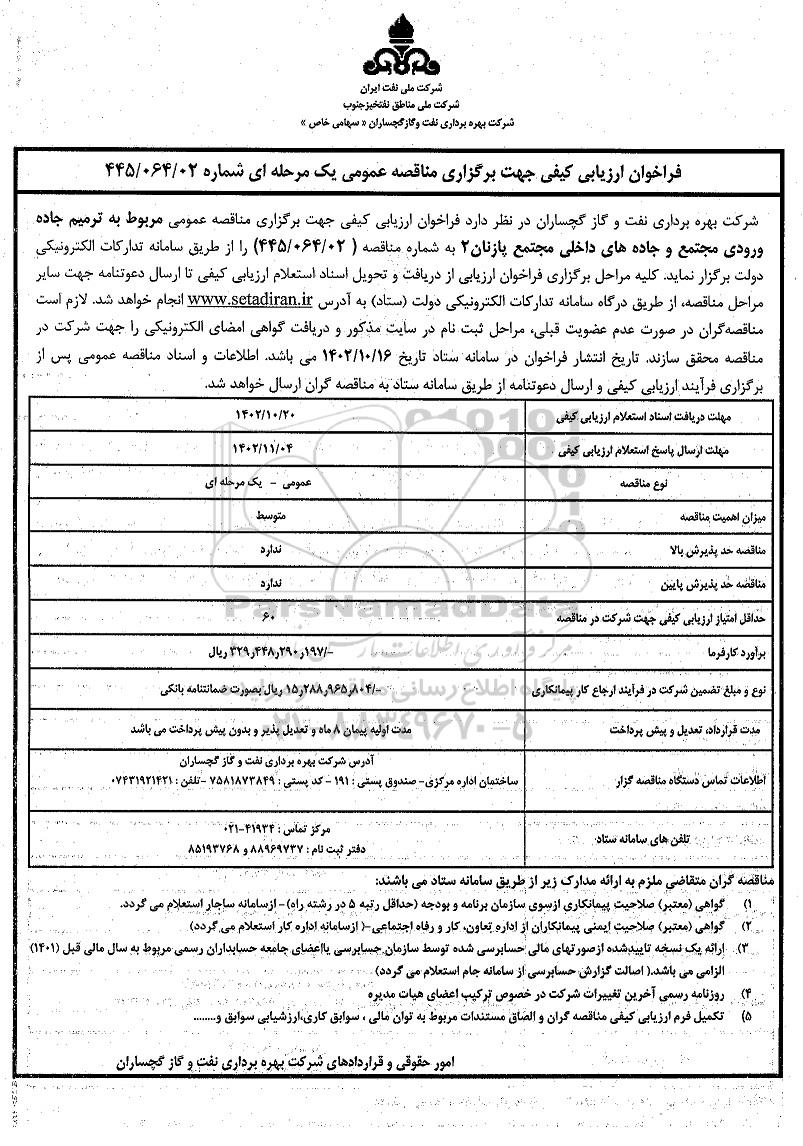 شرکت ملی نفت ایران
شرکت ملی مناطق نفتخیزجنوب
شرکت بهره برداری نفت وگازگچساران « سهامی خاص »
فراخوان ارزیابی کیفی جهت برگزاری مناقصه عمومی یک مرحله ای شماره ۴۴۵/۰۶۴/۰۲
شرکت بهره برداری نفت و گاز گچساران در نظر دارد فراخوان ارزیابی کیفی جهت برگزاری مناقصه عمومی مربوط به ترمیم جاده
ورودی مجتمع و جاده های داخلی مجتمع پازنان۲ به شماره مناقصه ( ۴۴۵/۰۶۴/۰۲ ) را از طریق سامانه تدارکات الکترونیکی
دولت برگزار نماید. کلیه مراحل برگزاری فراخوان ارزیابی از دریافت و تحویل اسناد استعلام ارزیابی کیفی تا ارسال دعوتنامه جهت سایر
مراحل مناقصه، از طریق درگاه سامانه تدارکات الکترونیکی دولت (ستاد) به آدرس www.setadiran.ir انجام خواهد شد. لازم است
مناقصه‌گران در صورت عدم عضویت قبلی، مراحل ثبت نام در سایت مذکور و دریافت گواهی امضای الکترونیکی را جهت شرکت در
مناقصه محقق سازند. تاریخ انتشار فراخوان در سامانه ستاد تاریخ ۱۴۰۲/۱۰/۱۶ می باشد. اطلاعات و اسناد مناقصه عمومی پس از
برگزاری فرآیند ارزیابی کیفی و ارسال دعوتنامه از طریق سامانه ستاد به مناقصه گران ارسال خواهد شد.
مهلت دریافت اسناد استعلام ارزیابی کیفی ۱۴۰۲/۱۰/۲۰
مهلت ارسال پاسخ استعلام ارزیابی کیفی ۱۴۰۲/۱۱/۰۴
نوع مناقصه عمومی - یک مرحله ای
میزان اهمیت مناقصه متوسط
مناقصه حد پذیرش بالا ندارد
مناقصه حد پذیرش پایین ندارد
حداقل امتیاز ارزیابی کیفی جهت شرکت در مناقصه ۶۰
برآورد کارفرما ۳۲۹٫۴۴۸٫۲۹۰٫۱۹۷/- ریال
نوع و مبلغ تضمین شرکت در فرآیند ارجاع کار پیمانکاری ۱۵٫۲۸۸٫۹۶۵٫۸۰۴/- ریال بصورت ضمانتنامه بانکی
مدت قرارداد، تعدیل و پیش پرداخت مدت اولیه پیمان ۸ ماه و تعدیل پذیر و بدون پیش پرداخت می باشد
آدرس شرکت بهره برداری نفت و گاز گچساران
اطلاعات تماس دستگاه مناقصه گزار ساختمان اداره مرکزی- صندوق پستی : ۱۹۱ - کد پستی : ۷۵۸۱۸۷۳۸۴۹ -تلفن : ۰۷۴۳۱۹۲۱۴۲۱
تلفن های سامانه ستاد مرکز تماس : ۴۱۹۳۴-۰۲۱
دفتر ثبت نام : ۸۸۹۶۹۷۳۷ و ۸۵۱۹۳۷۶۸
مناقصه گران متقاضی ملزم به ارائه مدارک زیر از طریق سامانه ستاد می باشند:
۱) گواهی (معتبر) صلاحیت پیمانکاری ازسوی سازمان برنامه و بودجه (حداقل رتبه ۵ در رشته راه)- ازسامانه ساجار استعلام می گردد.
۲) گواهی (معتبر) صلاحیت ایمنی پیمانکاران از اداره تعاون، کار و رفاه اجتماعی-( ازسامانه اداره کار استعلام می گردد)
۳) ارائه یک نسخه تاییدشده ازصورتهای مالی حسابرسی شده توسط سازمان حسابرسی یااعضای جامعه حسابداران رسمی مربوط به سال مالی قبل (۱۴۰۱)
الزامی می باشد.( اصالت گزارش حسابرسی از سامانه جام استعلام می گردد)
۴) روزنامه رسمی آخرین تغییرات شرکت در خصوص ترکیب اعضای هیات مدیره
۵) تکمیل فرم ارزیابی کیفی مناقصه گران و الصاق مستندات مربوط به توان مالی ، سوابق کاری،ارزشیابی سوابق و........
امور حقوقی و قراردادهای شرکت بهره برداری نفت و گاز گچساران
ParsNamadData
۰۲۱-۸۸۳۴۹۶۷۰-۵